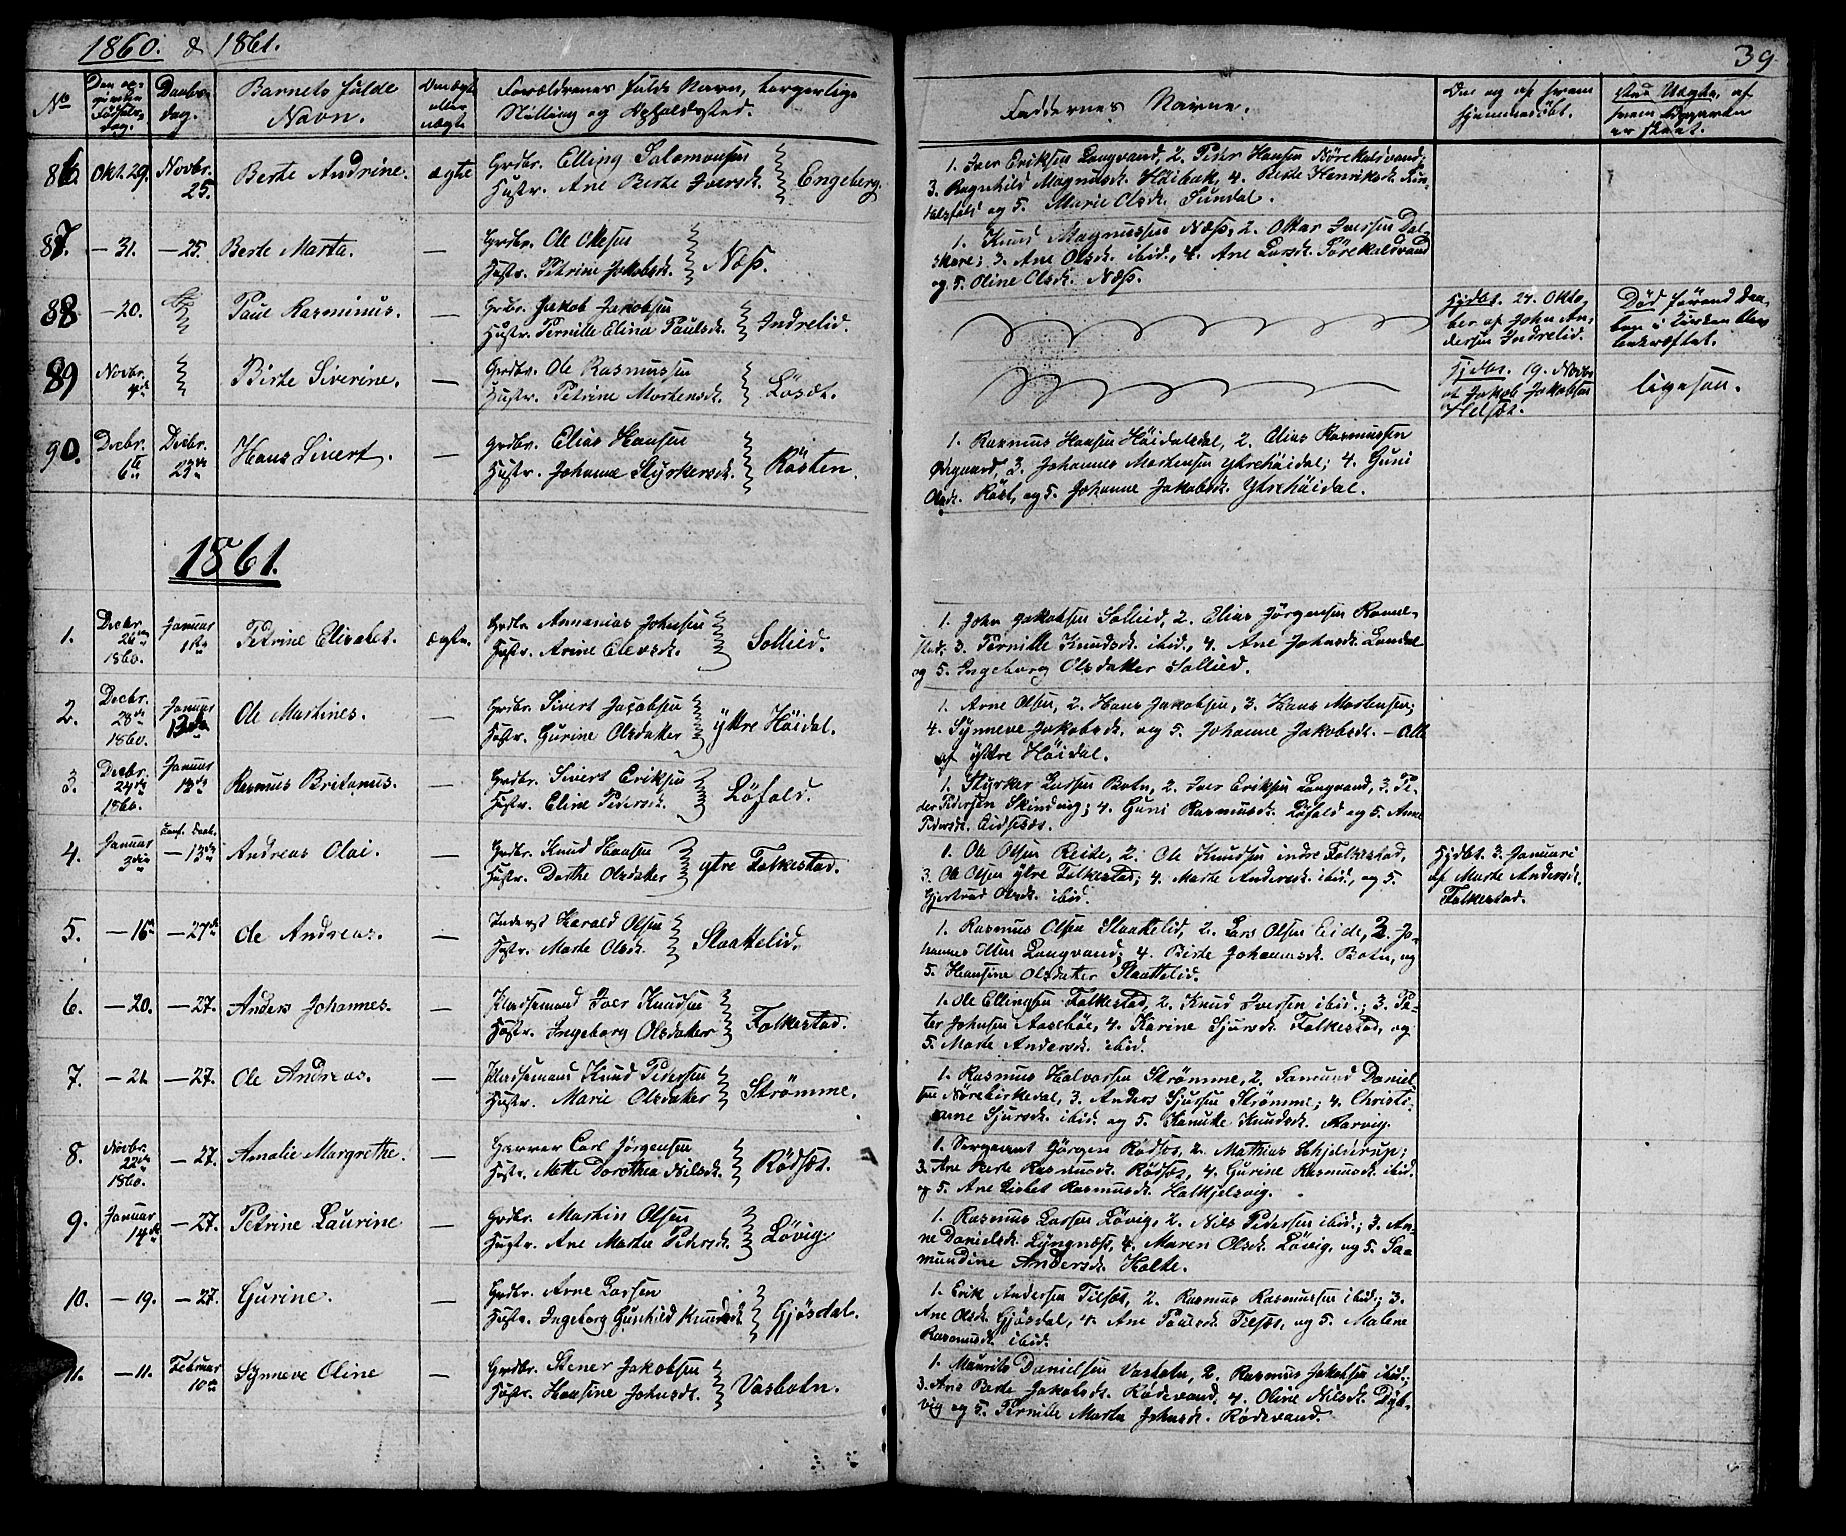 1860. & 1861.
39
No
Daabs-
dag.
Barnets fulde
Navn.
Forældrenes fulde Navn, borgerlige
Stilling og Opholdssted.
Faddernes Navne.
Om og af hvem
hjemmedöbt.
86. Okt. 29. Novbr. 25. Berte Andrine. ægte
Grdbr. Elling Salomonsen
Hustr. Ane Berte Iversdt. Engeberg.
1. Iver Eriksen Langvand, 2. Peder Hansen Nörekalsvand;
3. Ragnhild Magnusdt. Höibak, 4. Berte Henriksdt.
og 5. Marie Olsdt. Sundal.
87. — 31. — 25. Berte Marta. —
Grdbr. Ole Olsen
Hustr. Petrine Jakobsdt. Næss.
1. Knud Magnussen Næss, 2. Ottar Iversen Dal-
skare; 3. Ane Olsdt. ibid., 4. Ane Larsdt.
og 5. Oline Olsdt. Næss.
88 — 20. Paul Rasminus. —
Grdbr. Jakob Jakobsen
Hustr. Pernille Elina Paulsdt. Indrelid.
Hjdbt. 24. Okto-
ber af John An-
dersen Indrelid.
Död förend Daa-
ben i Kirken blev
bekræftet.
89 Novbr. Birte Siverine. —
Grdbr. Ole Rasmussen
Hustr. Petrine Mortensdt. Löset.
Hjdbt. 19. Novbr
af Jakob Jakobsen
Helsæt.
ligesaa.
90. Decbr. 6te Decbr. 23de Hans Sivert. —
Grdbr. Elias Hansen
Hustr. Johanne Styrkersdt. Rösten.
1. Rasmus Hansen Höidalsdal, 2. Elias Rasmussen
Ödegaard, 3. Johannes Mortensen Ytrehöidal; 4. Guni
Olsdt. Röst, og 5. Johanne Jakobsdt. Ytrehöidal.
1861.
1. Decbr. 26de 1860. Januar 1ste Petrine Elisabet. ægte.
Grdbr. Annanias Johnsen
Hustr. Arine Elevsdt. Sollied.
1. John Jakobsen Sollied, 2. Elias Jörgensen
3. Pernille Knudsdt. ibid., 4. Ane Johnsdt. Landal
og 5. Ingeborg Olsdatter Sollied.
2. Decbr. 28de 1860. Januar 13de Ole Martines. —
Grdbr. Sivert Jacobsen
Hustr. Gurine Olsdatter ytre Höidal.
1. Arne Olsen, 2. Hans Jakobsen, 3. Hans Mortensen;
4. Synneve Jakobsdt. og 5. Johanne Jakobsdt. — Alle
af ytre Höidal.
3. Decbr. 24de 1860. Januar 13de Rasmus Britanus. —
Grdbr. Sivert Eriksen
Hustr. Eline Pedersdt. Löfald.
1. Styrker Larsen Botn, 2. Iver Eriksen Langvand, 3. Pe-
der Pedersen Skindvig; 4. Guni Rasmusdt. Löfald og 5. Anne
Pedersdt. Eidsesæt.
4. Januar 3die — 13de Andreas Olai. —
Grdbr. Knud Hansen
Hustr. Dorthe Olsdatter ytre Folkestad.
1. Ole Olsen Reite, 2. Ole Knudsen indre Folkestad,
3. Ole Olsen ytre Folkestad; 4. Marte Andersdt. ibid., og 5.
Gjertrud Olsdt. ibid.
Hjdbt. 3. Januari
af Marte Andersdt.
Folkestad.
5. — 16de — 27de Ole Andreas. —
Inderst Harald Olsen
Hustr. Marte Olsdt. Slaattelid.
1. Rasmus Olsen Slaattelid, 2. Lars Olsen Eide, 3. Jo-
hannes Olsen Langvand; 4. Berte Johannesdt. Botn, og
5. Hansine Olsdatter Slaattelid.
6. — 20. — 27. Anders Johannes. —
Pladsemand Iver Knudsen
Hustr. Ingeborg Olsdatter Folkestad.
1. Ole Ellingsen Folkestad, 2. Knud Iversen ibid.; 3. Pe-
ter Johnsen Aaseböe, 4. Karine Sjursdt. Folkestad, og
5. Marte Andersdt. ibid.
7. — 21. — 27. Ole Andreas. —
Pladsemand Knud Pedersen
Hustr. Marie Olsdatter Strömme.
1. Rasmus Halvorsen Strömme, 2. Samund Daniel-
sen Nörebirkedal, 3. Anders Sjursen Strömme; 4. Christi-
anne Sjursdt. ibid. og 5. Kanutte Knudsdt. Aarvig.
8. Novbr. 22de 1860. — 27. Amalie Margrethe. —
Garver Carl Jörgensen
Hustr. Mette Dorothea Nilsdt. Rödsæt.
1. Sergeant Görgen Rödsæt, 2. Mathias Schjelderup;
3. Ane Berte Rasmusdt. Rödsæt, 4. Gurine Rasmusdt. ibid.
og 5. Ane Lisbet Rasmusdt. Halkjelsvig.
9. Januar 14de — 27. Petrine Laurine —
Grdbr. Martin Olsen
Hustr. Ane Marte Petersdt. Lövig.
1. Rasmus Larsen Lövig, 2. Nils Pedersen ibid.; 3. An-
ne Danielsdt. Lyngnæss, 4. Maren Olsdt. Lövig, og 5. Saa-
mundine Andersdt. Holte.
10. — 19. — 27. Gurine. —
Grdbr. Arne Larsen
Hustr. Ingeborg Gunhild Knudsdt. Gjösdal.
1. Erik Andersen Tilsæt, 2. Rasmus Rasmussen ibid.; 3.
Ane Olsdt. Gjösdal, 4. Ane Paulsdt. Tilsæt, og 5. Malene
Rasmusdt. ibid.
11. — 11. Februar 10de Synneve Oline —
Grdbr. Stener Jakobsen
Hustr. Hansine Johnsdt. Vasbotn.
1. Maurits Danielsen Vasbotn, 2. Rasmus Jakobsen ibid.;
3. Ane Berte Jakobsdt. Rödevand, 4. Oline Nilsdt. Dyb-
vig og 5. Pernille Marta Johnsdt. Rödevand.